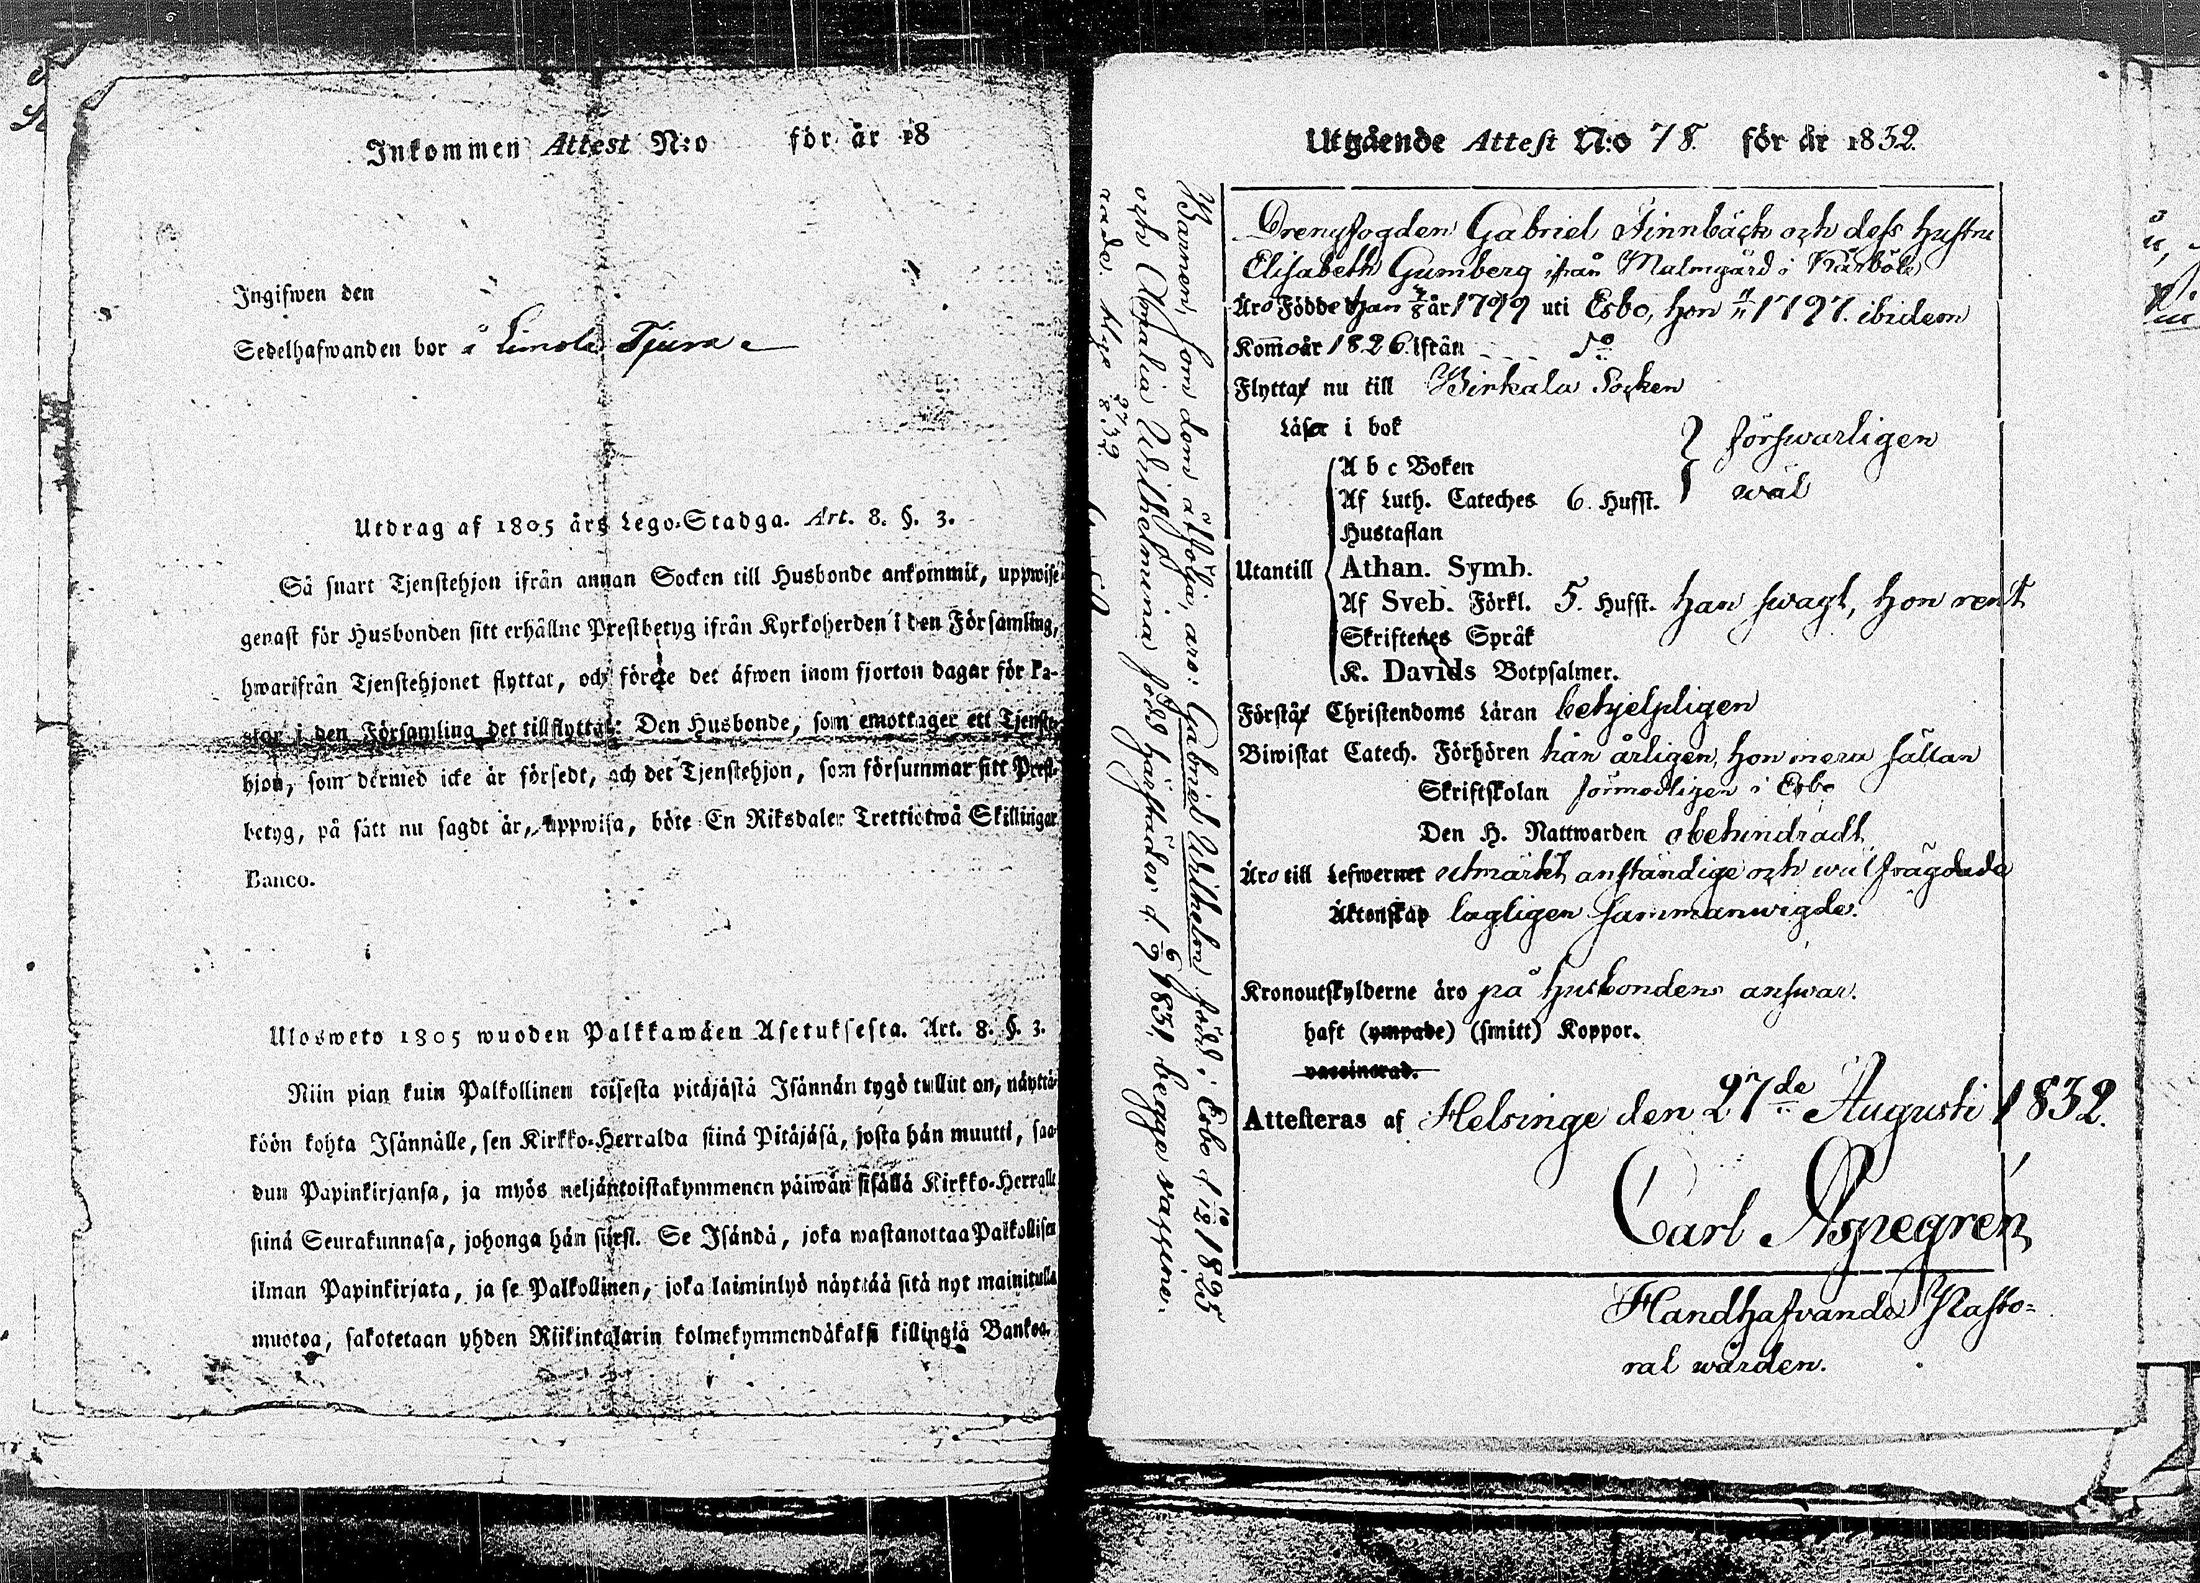 Inkommen Attest N:o för år 18
Ingifwen den
Sedelhafwanden bor å Tjura
Utdrag af 1805 års Lego-Stadga. Art. 8. §. 3.
Så snart Tjenstehjon ifrån annan Socken till Husbonde ankommit, uppwise
genast för Husbonden sitt erhållne Prestbetyg ifrån Kyrkoherden i den Församling,
hwarifrån Tjenstehjonet flyttat, och förete det äfwen inom fjorton dagar för Pa-
stor i den Församling det tillflyttat: Den Husbonde, som emottager ett Tjenste-
hjon, som dermed icke är försedt, och det Tjenstehjon, som försummar sitt Prest-
betyg, på sätt nu sagdt är, uppwisa, böte En Riksdaler Trettiotwå Skillingar
Banco.
Ulosweto 1805 wuoden Palkkawäen Asetuksesta. Art. 8. §. 3.
Niin pian kuin Palkollinen toisesta pitäjästä Isännän tygö tullut on, näyttä-
köön kohta Isännälle, sen Kirkko-Herralda siinä Pitäjäsä, josta hän muutti, saa-
dun Papinkirjansa, ja myös neljäntoistakymmenen päiwän sisällä Kirkko-Herralle
siinä Seurakunnasa, johonga hän siirsi. Se Isändä, joka wastanottaa Palkollisen
ilman Papinkirjata, ja se Palkollinen, joka laiminlyö näyttää sitä nyt mainitulla
muotoa, sakotetaan yhden Riikintalarin kolmekymmendäkaksi killingiä Bankoa.
Utgående Attest N:o 78. för år 1832.
Drengfogden Gabriel Finnbäck och dess hustru
Elisabeth Gumberg ifrån Malmgård i Kårböle
Äro Födde han 7/8 år 1799 uti Esbo, hon 1797. ibidem
Kommo år 1826. ifrån do
Flyttat nu till Birkala Socken
Läser i bok försvarligen
A b c Boken
Af Luth. Cateches 6. Hufst. wäl
Hustaflan
Utantill Athan. Symb.
Af Sveb. Förkl. 5. Hufst. han swagt, hon rent
Skriftenes Språk
K. Davids Botpsalmer.
Förstår Christendoms Läran behjelpligen
Biwistat Catech. Förhören han årligen, hon mera sällan
Skriftskolan förmodligen i Esbo
Den H. Nattwarden obehindradt
Äro till Lefwernet utmärkt anständige och wäl frägdade
Äktenskap lagligen sammanwigde.
Kronoutskylderne äro på husbondens answar.
haft (ympade) (smitt) Koppor.
vaccinerad.
Attesteras af Helsinge den 27de Augusti 1832.
Carl Aspegren
Handhafvande Pasto-
ral wården.
Barnen, som dem åtfölja, äro: Gabriel Wilhelm född i Esbo d 10/12 1825
och Amalia Wilhelmina född härstädes d 6/9 1831, begge vaccine-
rade. 27/8 32